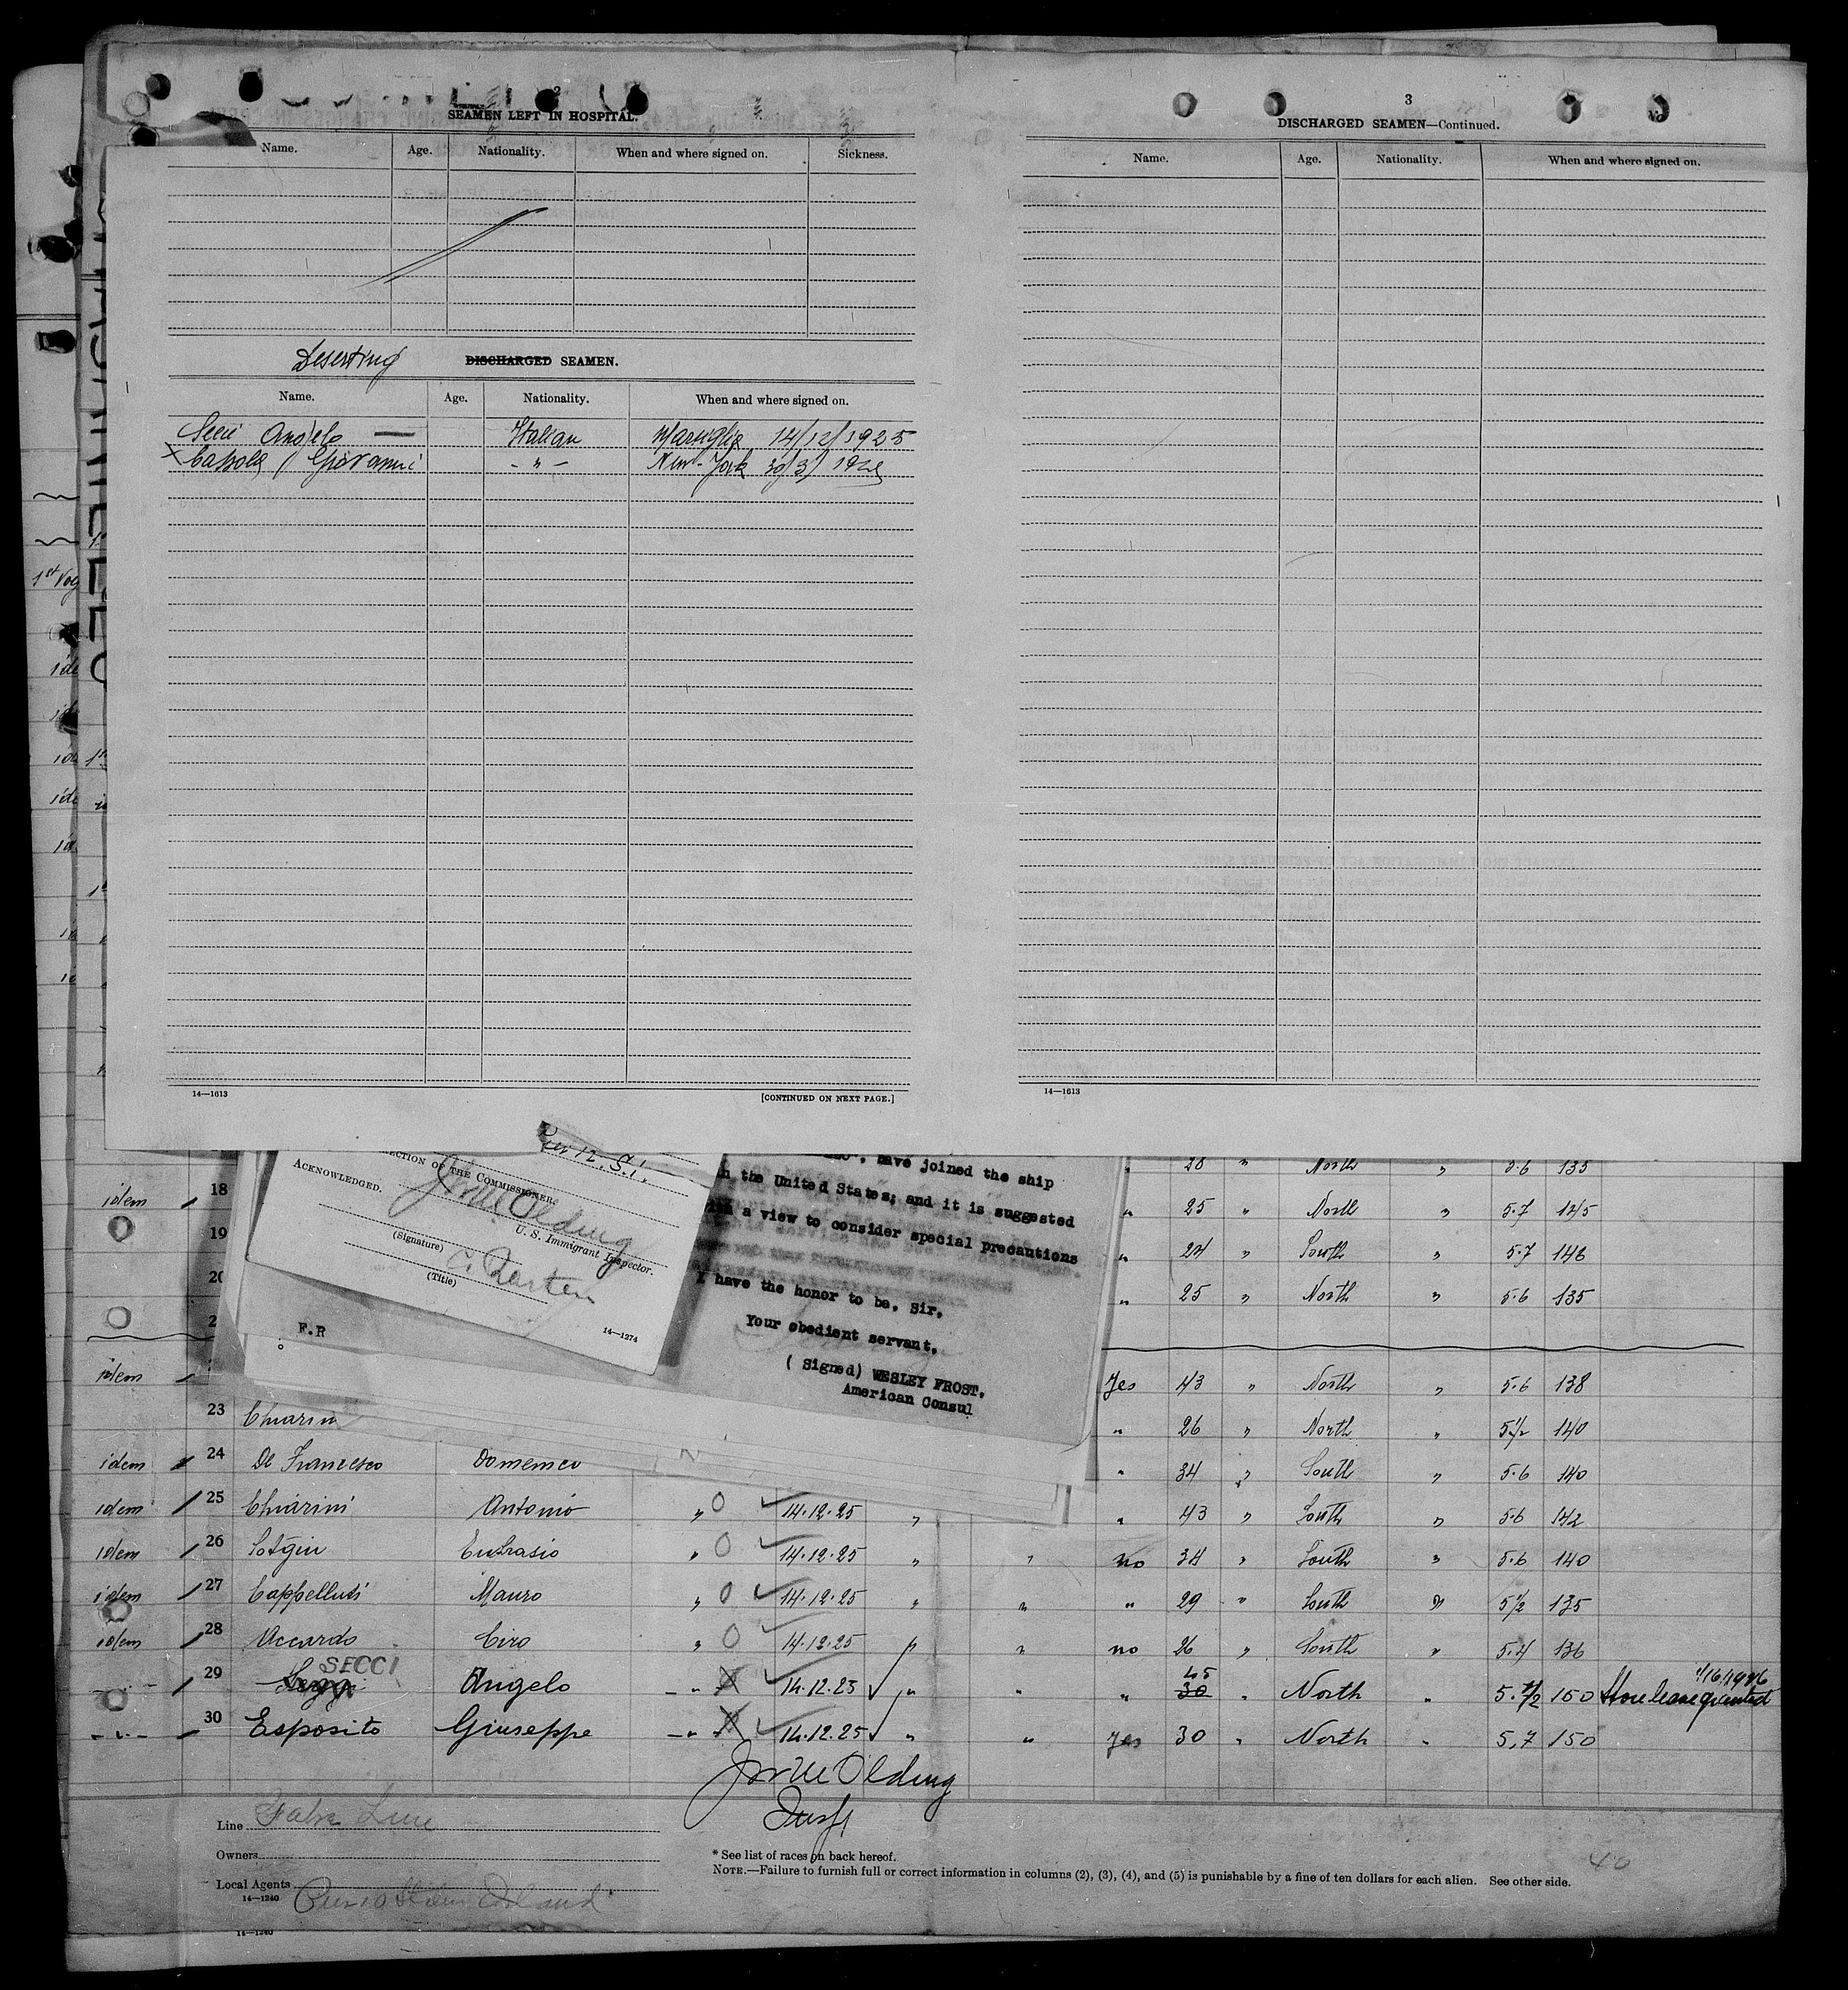 2
SEAMEN LEFT IN HOSPITAL.
Name. Age. Nationality. When and where signed on. Sickness.
Deserting DISCHARGED SEAMEN.
Name. Age. Nationality. When and where signed on.
Secci Angelo — Italian Marsiglia 14/12/1925
Giovanni - " - New-York 30/3/
14—1613 [CONTINUED ON NEXT PAGE.]
3
DISCHARGED SEAMEN—Continued.
Name. Age. Nationality. When and where signed on.
14—1613
1st Voy
Pier 12. S.I.
ECTION OF THE COMMISSIONER.
ACKNOWLEDGED.
U. S. Immigrant Inspector.
(Signature)
(Title)
14—1274
F.R
have joined the ship
the United States; and it is suggested
a view to consider special precautions
I have the honor to be, Sir,
Your obedient servant,
( Signed) WESLEY FROST,
American Consul
28 " North " 5.6 135
idem 18 " 25 " North " 5.7 145
19 " 24 " South " 5.7 146
20 " 25 " North " 5.6 135
2
idem Yes 43 " North " 5.6 138
23 Chiarin " 26 " North " 5½ 140
idem 24 De Francesco Domenico " 34 " South " 5.6 140
idem 25 Chiarini Antonio " O 14.12.25 " " 43 " South " 5.6 142
idem 26 Sotgiu Eufrasio " O 14.12.25 " " no 34 " South " 5.6 140
idem 27 Cappelluti Mauro " O 14.12.25 " " " 29 " South " 5½ 135
idem 28 Accardo Ciro " O 14.12.25 " " no 26 " South " 5.4 136
- " - 29 SECCI Angelo - " - 14.12.25 " " " 45 30 " North " 5.½ 150 Shore leave granted
- " - 30 Esposito Giuseppe - " - 14.12.25 " " Yes 30 " North " 5,7 150
Olding
Insp
Line Fabre Line
Owners
Local Agents
14—1240
Pier Staten Island
14—1240
* See list of races on back hereof.
NOTE.—Failure to furnish full or correct information in columns (2), (3), (4), and (5) is punishable by a fine of ten dollars for each alien. See other side.
40